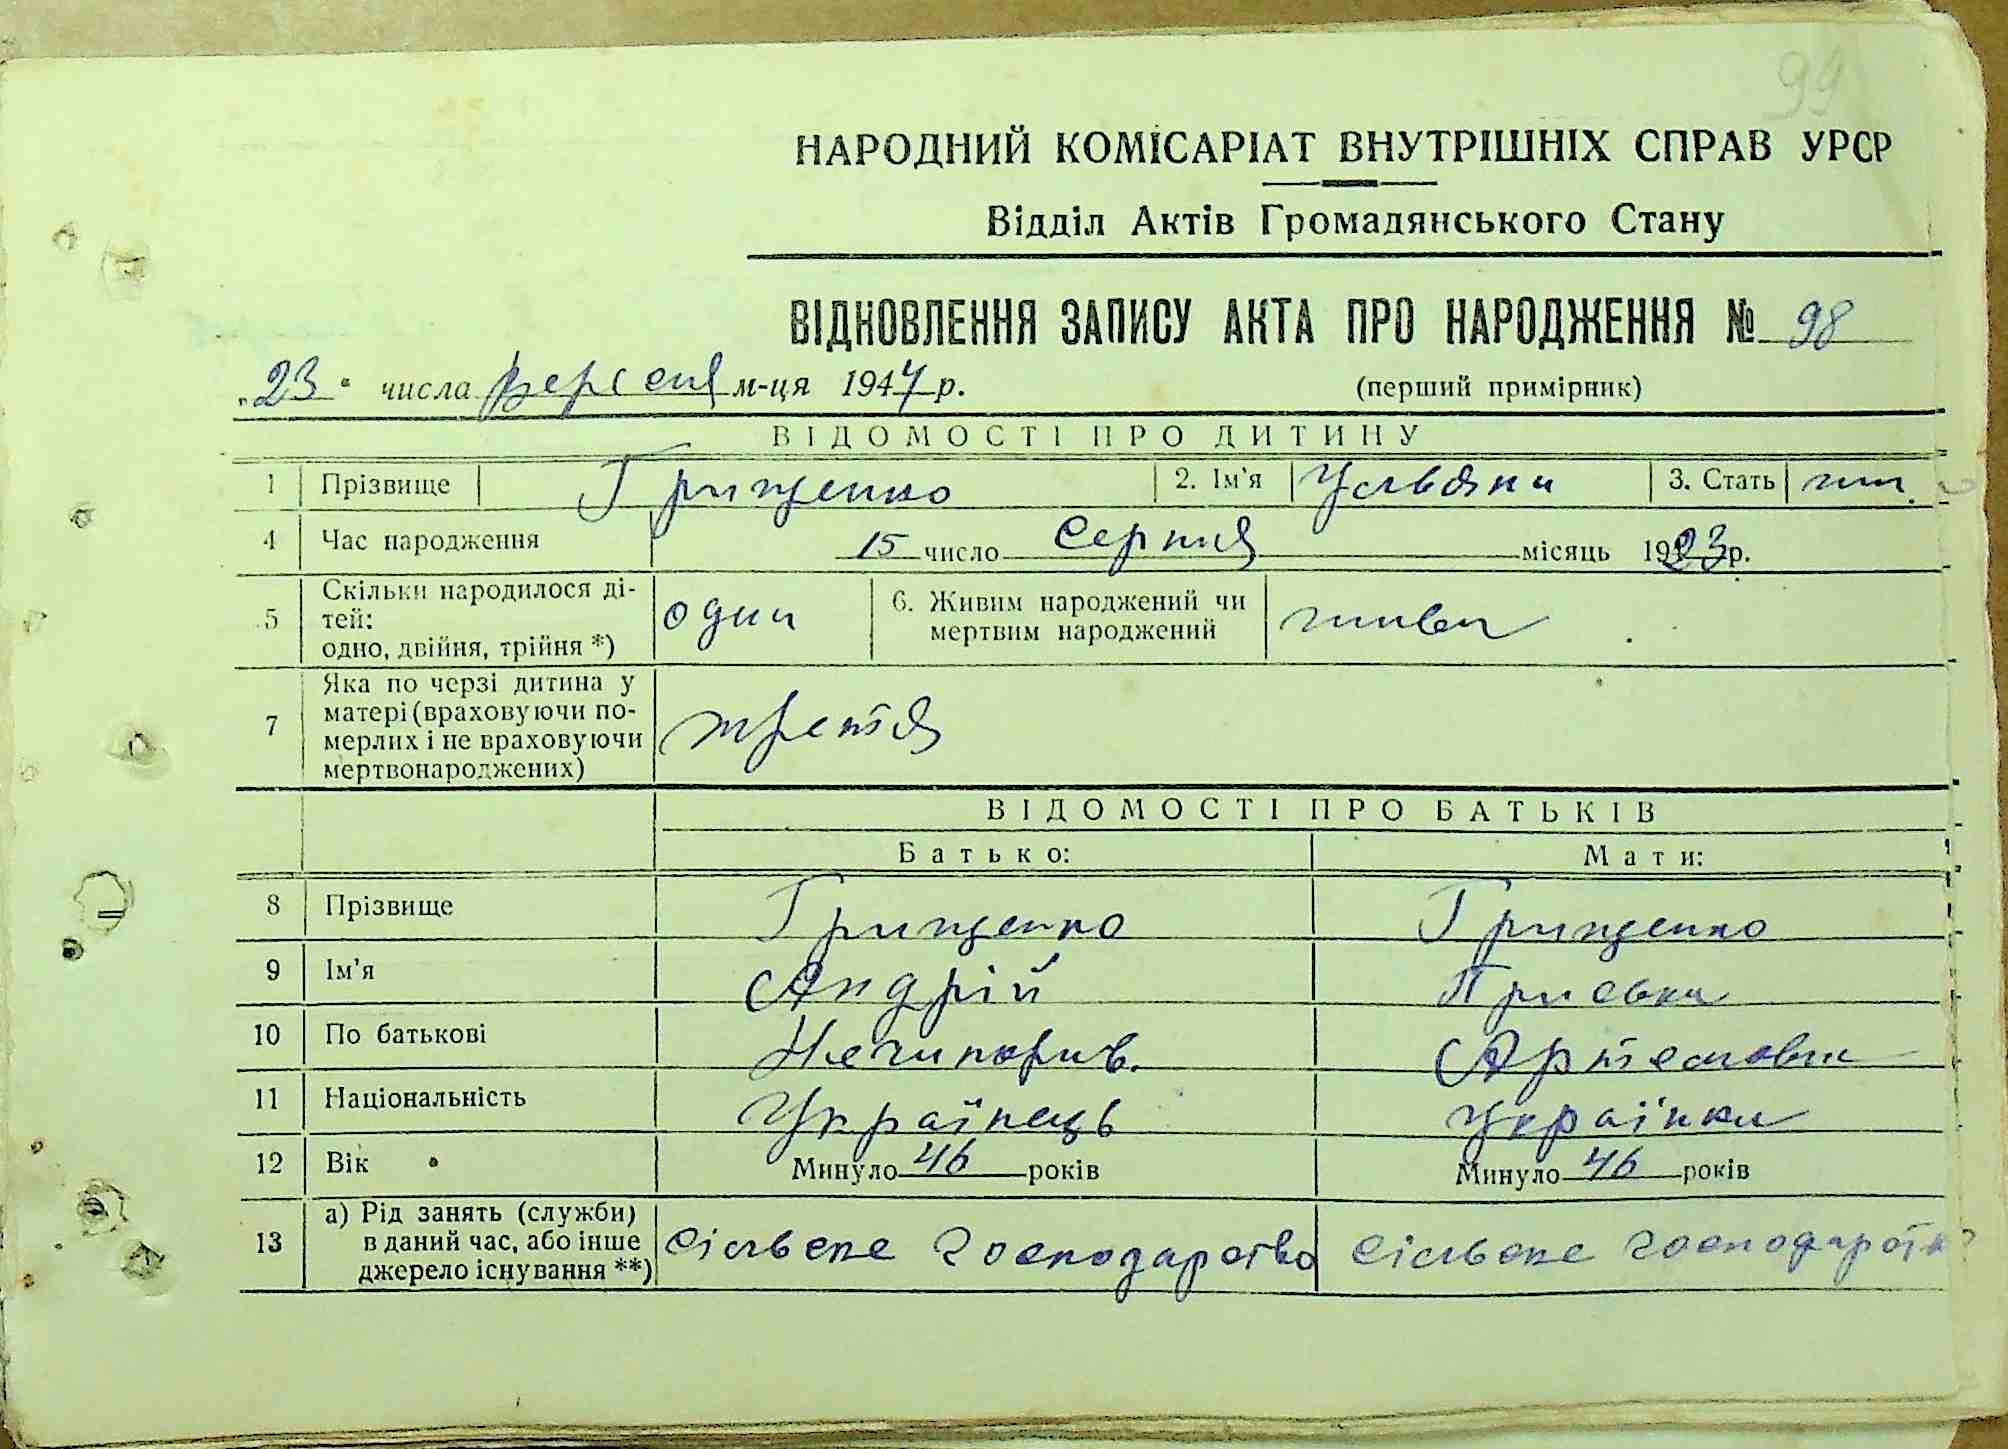 99
НАРОДНИЙ КОМІСАРІАТ ВНУТРІШНІХ СПРАВ УРСР
Відділ Актів Громадянського Стану
ВІДНОВЛЕННЯ ЗАПИСУ АКТА ПРО НАРОДЖЕННЯ № 98
„23" числа вересня м-ця 1944 р. (перший примірник)
ВІДОМОСТІ ПРО ДИТИНУ
1 Прізвище Грищенко 2. Ім'я Ульяна 3. Стать жін.
4 Час народження 15 число Серпня місяць 1923 р.
5 Скільки народилося ді-
тей:
одно, двійня, трійня *) одна 6. Живим народжений чи
мертвим народжений жива
7 Яка по черзі дитина у
матері (враховуючи по-
мерлих і не враховуючи
мертвонароджених) третя
ВІДОМОСТІ ПРО БАТЬКІВ
Батько: Мати:
8 Прізвище Грищенко Грищенко
9 Ім'я Андрій Приська
10 По батькові Нечипорів. Артемовна
11 Національність Українець Українка
12 Вік Минуло 46 років Минуло 46 років
13 а) Рід занять (служби)
в даний час, або інше
джерело існування **) сільске господарство сільске